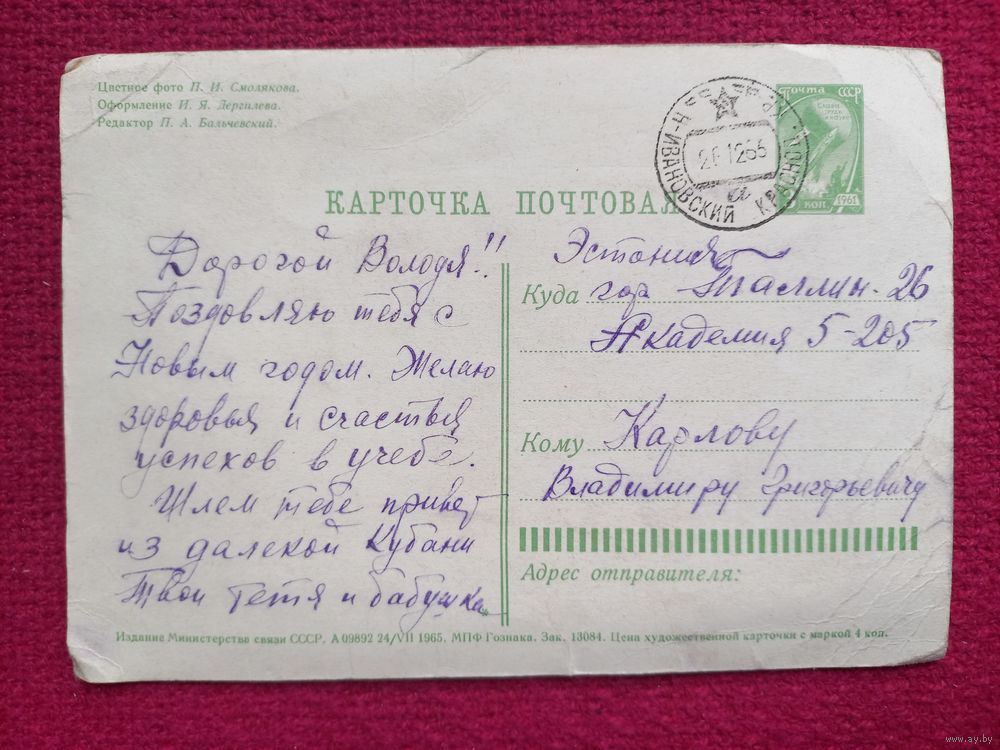 Цветное фото П. И. Смолякова.
Оформление И. Я. Дергилева.
Редактор П. А. Бальчевский.
Почта СССР
коп.
1961
Н-ИВАНОВСКИЙ КРАСНОД.
КАРТОЧКА ПОЧТОВАЯ
Дорогой Володя!!
Поздовляю тебя с
Новым годом. Желаю
здоровья и счастья
успехов в учебе.
Шлем тебе привет
из далекой Кубани
Твои тетя и бабушка
Эстония
Куда гор Таллин-26
Академия 5-205
Кому Карлову
Владимиру Григорьевичу
Адрес отправителя:
Издание Министерства связи СССР. А 09892 24/VII 1965. МПФ Гознака. Зак. 13084. Цена художественной карточки с маркой 4 коп.
www.ay.by